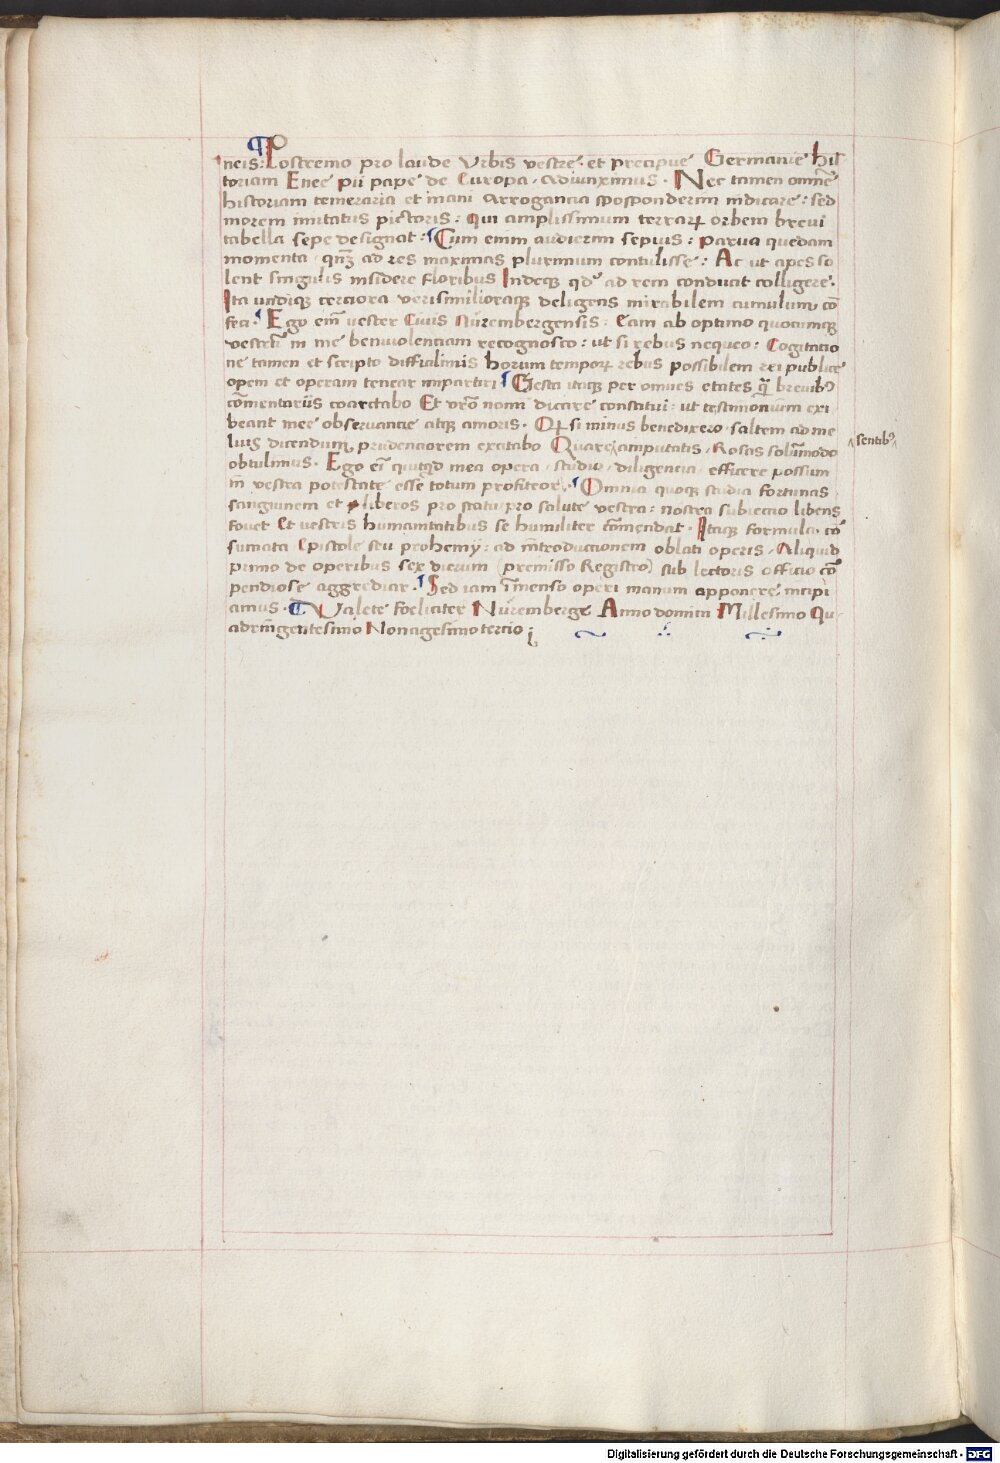 neis: Postremo pro laude Vrbis vestre· et precipue Germanie his
toriam Enee pii pape de Europa · adiunximus · Nec tamen omnē
historiam temeraria et inani arrogancia sposponderim indicare: sed
morem imitatus pictoris: qui amplissimum terrarꝝ orbem breui
tabella sepe designat: Cum enim audierim sepius: parua quedam
momenta · qnꝫ ad res maximas plurimum contulisse: Ac ut apes so
lent singulis insidere floribus Indeqꝫ qd' ad rem conducit colligere·
Ita undiqꝫ cerciora verisimilioraqꝫ deligens mirabilem cumulum cō
feci· Ego em̄ vester Ciuis Nürembergensis: Eam ab optimo quocumqꝫ
vestrū in me beniuolenciam recognosco: ut si rebus nequeo: Cogitacio
ne tamen et scripto difficilimis horum temporꝝ rebus possibilem rei publice
opem et operam tenear impartiri Gesta itaqꝫ per omnes etates breuibꝰ
cōmentariis coarctabo Et vr̄o noīni dicare constitui: ut testimonium exi
beant mee obseruancie atqꝫ amoris· si minus benedixero · saltem ad me
lius dicendum prudenciorem excitabo Quare amputatis · Rosas solūmodo
sentibꝰ
obtulimus · Ego em̄ quitqd mea opera · studio · diligencia · efficere possum
in vestra potestate esse totum profiteor· Omnia quoqꝫ studia fortunas
sanguinem et liberos pro statu pro salute vestra: nostra subiectio libens
fouet Et vestris humanitatibus se humiliter cōmendat · Itaqꝫ formula· cō
sumata Epistole seu prohemij: ad introductionem oblati operis · Aliquid
primo de operibus sex dierum (premisso Registro) sub lectoris officio cō
pendiose aggrediar· Sed iam īmenso operi manum apponere incipi
amus· Valete foeliciter Nüremberge Anno domini Millesimo Qu
adringentesimo Nonagesimo tercio
Digitalisierung gefördert durch die Deutsche Forschungsgemeinschaft - DFG